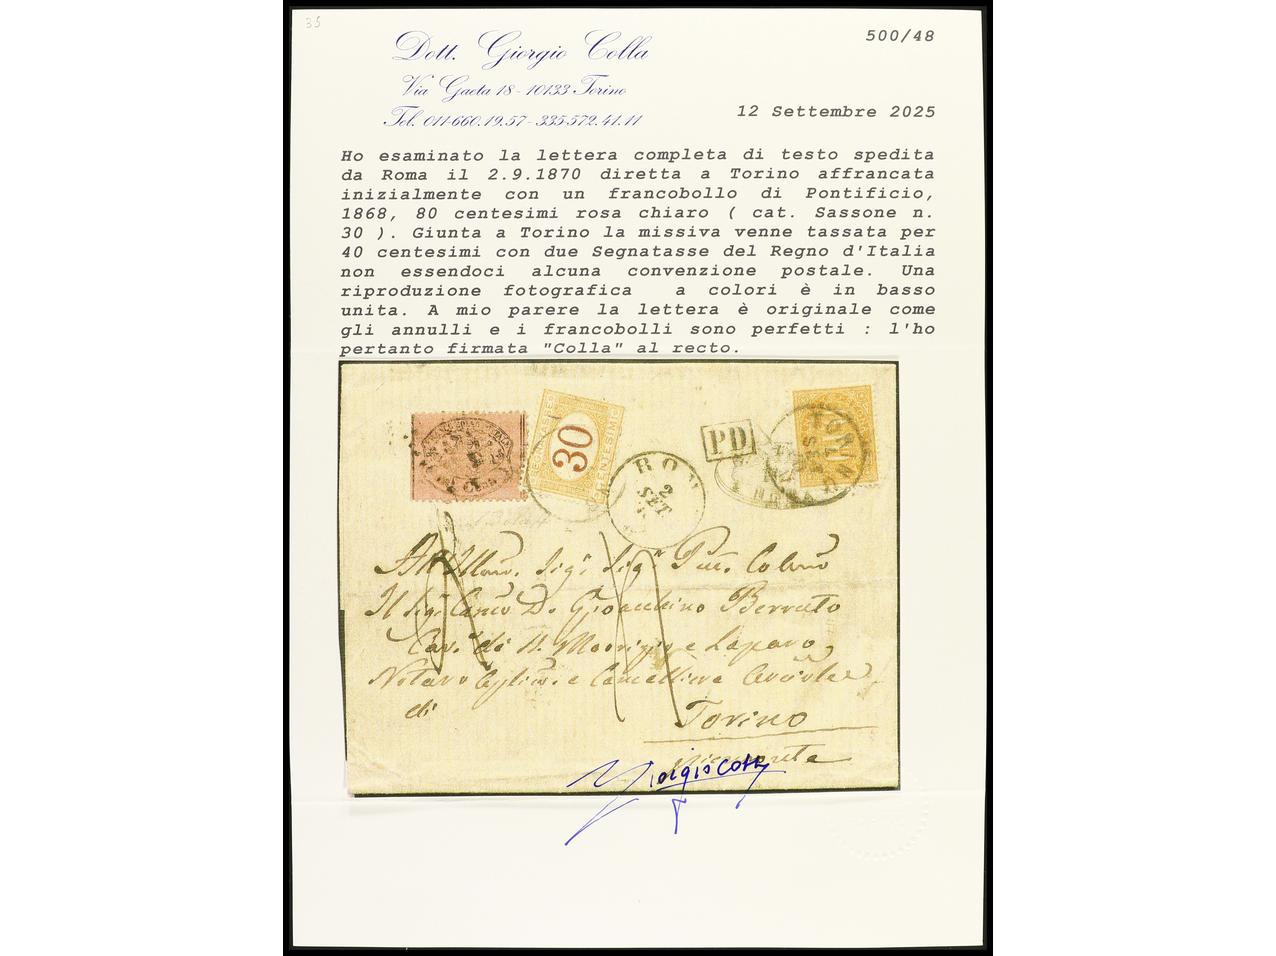 35
500/48
Dott. Giorgio Colla
Via Gaeta 18 - 10133 Torino
Tel. 011-660.19.57 - 335-572.41.11
12 Settembre 2025
Ho esaminato la lettera completa di testo spedita
da Roma il 2.9.1870 diretta a Torino affrancata
inizialmente con un francobollo di Pontificio,
1868, 80 centesimi rosa chiaro ( cat. Sassone n.
30 ). Giunta a Torino la missiva venne tassata per
40 centesimi con due Segnatasse del Regno d'Italia
non essendoci alcuna convenzione postale. Una
riproduzione fotografica a colori è in basso
unita. A mio parere la lettera è originale come
gli annulli e i francobolli sono perfetti : l'ho
pertanto firmata "Colla" al recto.
30
CENTESIMI
PD
ROM
2
SET.
TORINO
ROMA
Sig.
Il Sig. D. Gioacchino Berruto
Cav. di e Lazzaro
Notaro e Cancelliere
di
Torino
Giorgio Colla